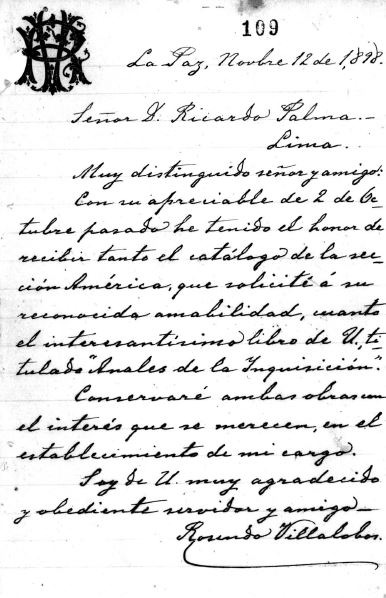 109
La Paz, Novbre 12 de 1,898.
Señor D. Ricardo Palma.-
Lima.
Muy distinguido señor y amigo:
Con su apreciable de 2 de Oc-
tubre pasado he tenido el honor de
recibir tanto el catálogo de la sec-
ción América, que solicité á su
reconocida amabilidad, cuanto
el interesantísimo libro de U., ti-
tulado "Anales de la Inquisición".
Conservaré ambas obras con
el interés que se merecen, en el
establecimiento de mi cargo.
Soy de U. muy agradecido
y obediente servidor y amigo-
Rosendo Villalobos.